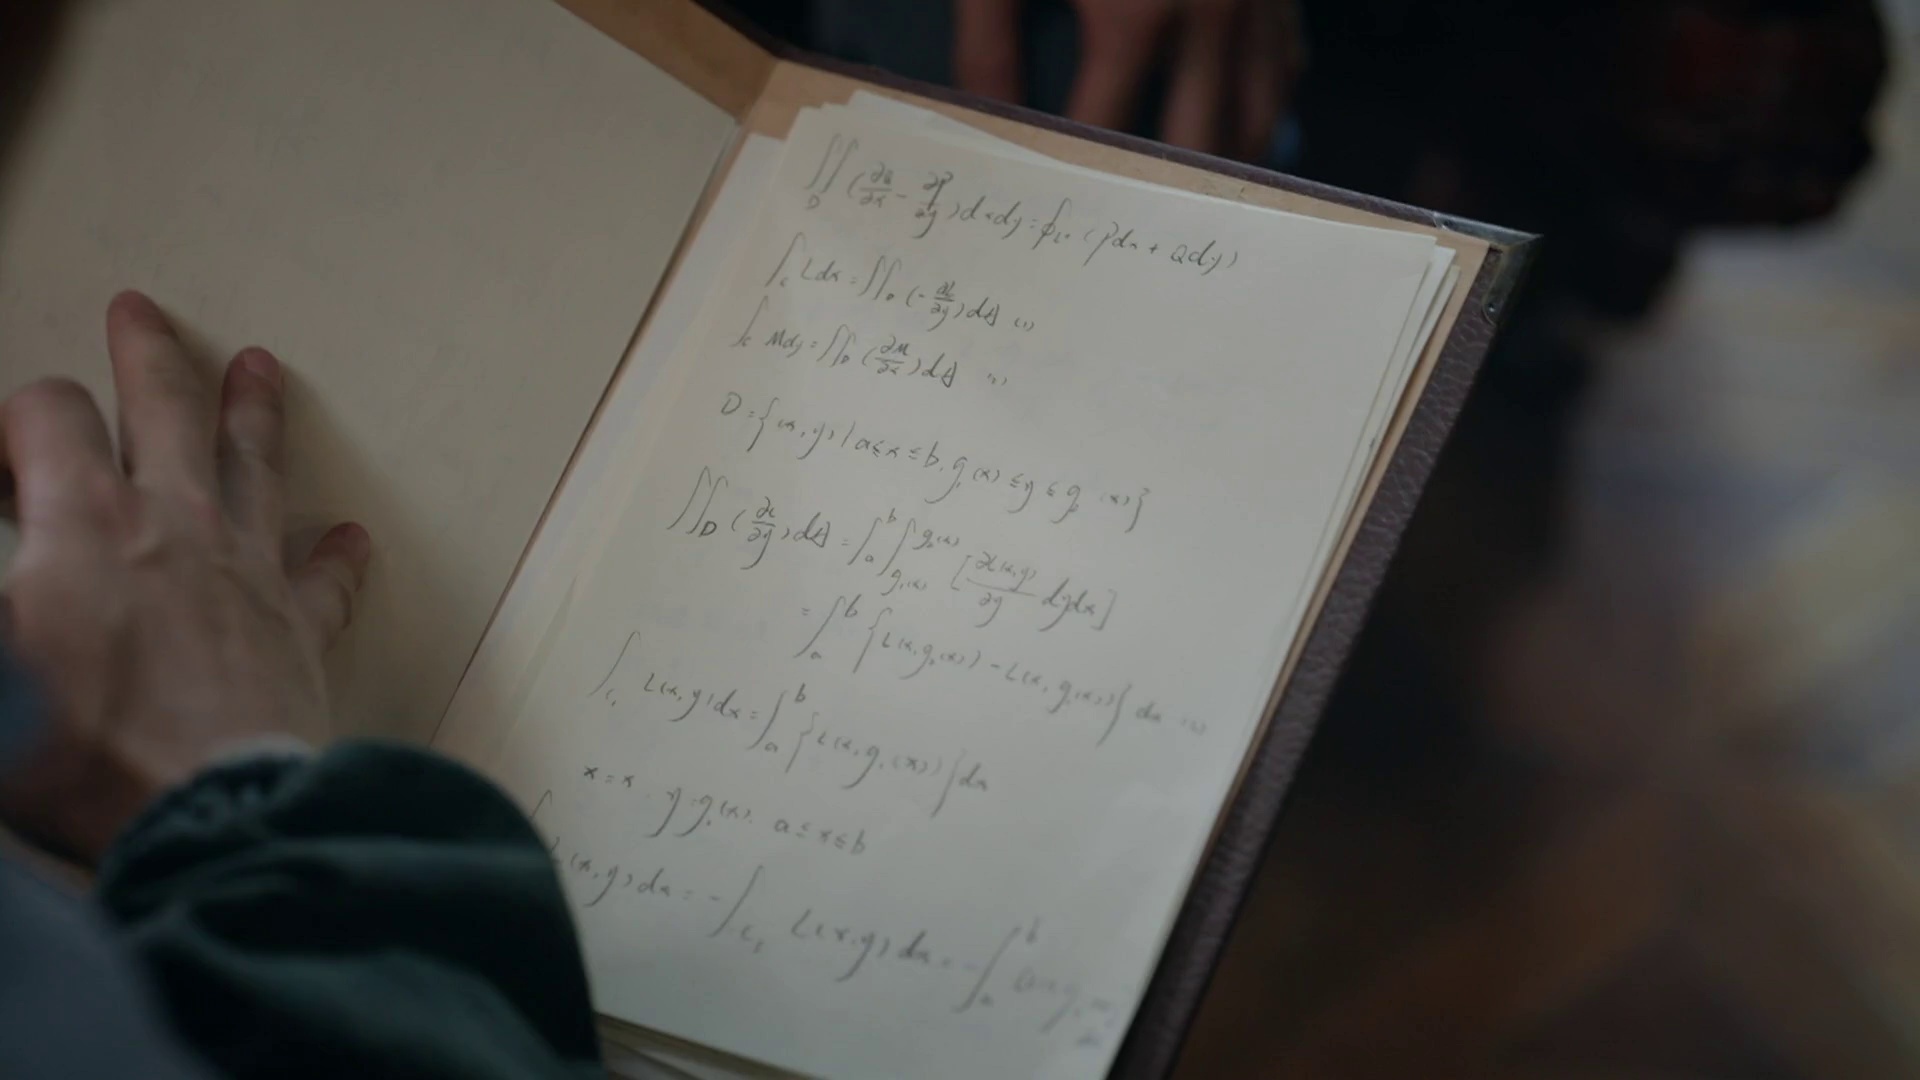 ∬_D (∂Q/∂x - ∂P/∂y) dxdy = ∮_L+ (Pdx + Qdy)
∫_C Ldx = ∬_D (-∂L/∂y) dA (1)
∫_C Mdy = ∬_D (∂M/∂x) dA (2)
D = {(x,y) | a ≤ x ≤ b, g₁(x) ≤ y ≤ g₂(x)}
∬_D (∂L/∂y) dA = ∫_a^b ∫_{g₁(x)}^{g₂(x)} [∂L(x,y)/∂y dydx]
= ∫_a^b {L(x,g₂(x)) - L(x,g₁(x))} dx
∫_{C₁} L(x,y)dx = ∫_a^b {L(x,g₁(x))} dx
x = x, y = g₁(x), a ≤ x ≤ b
(x,y)dx = -∫_{C₃} L(x,y)dx = -∫_a^b